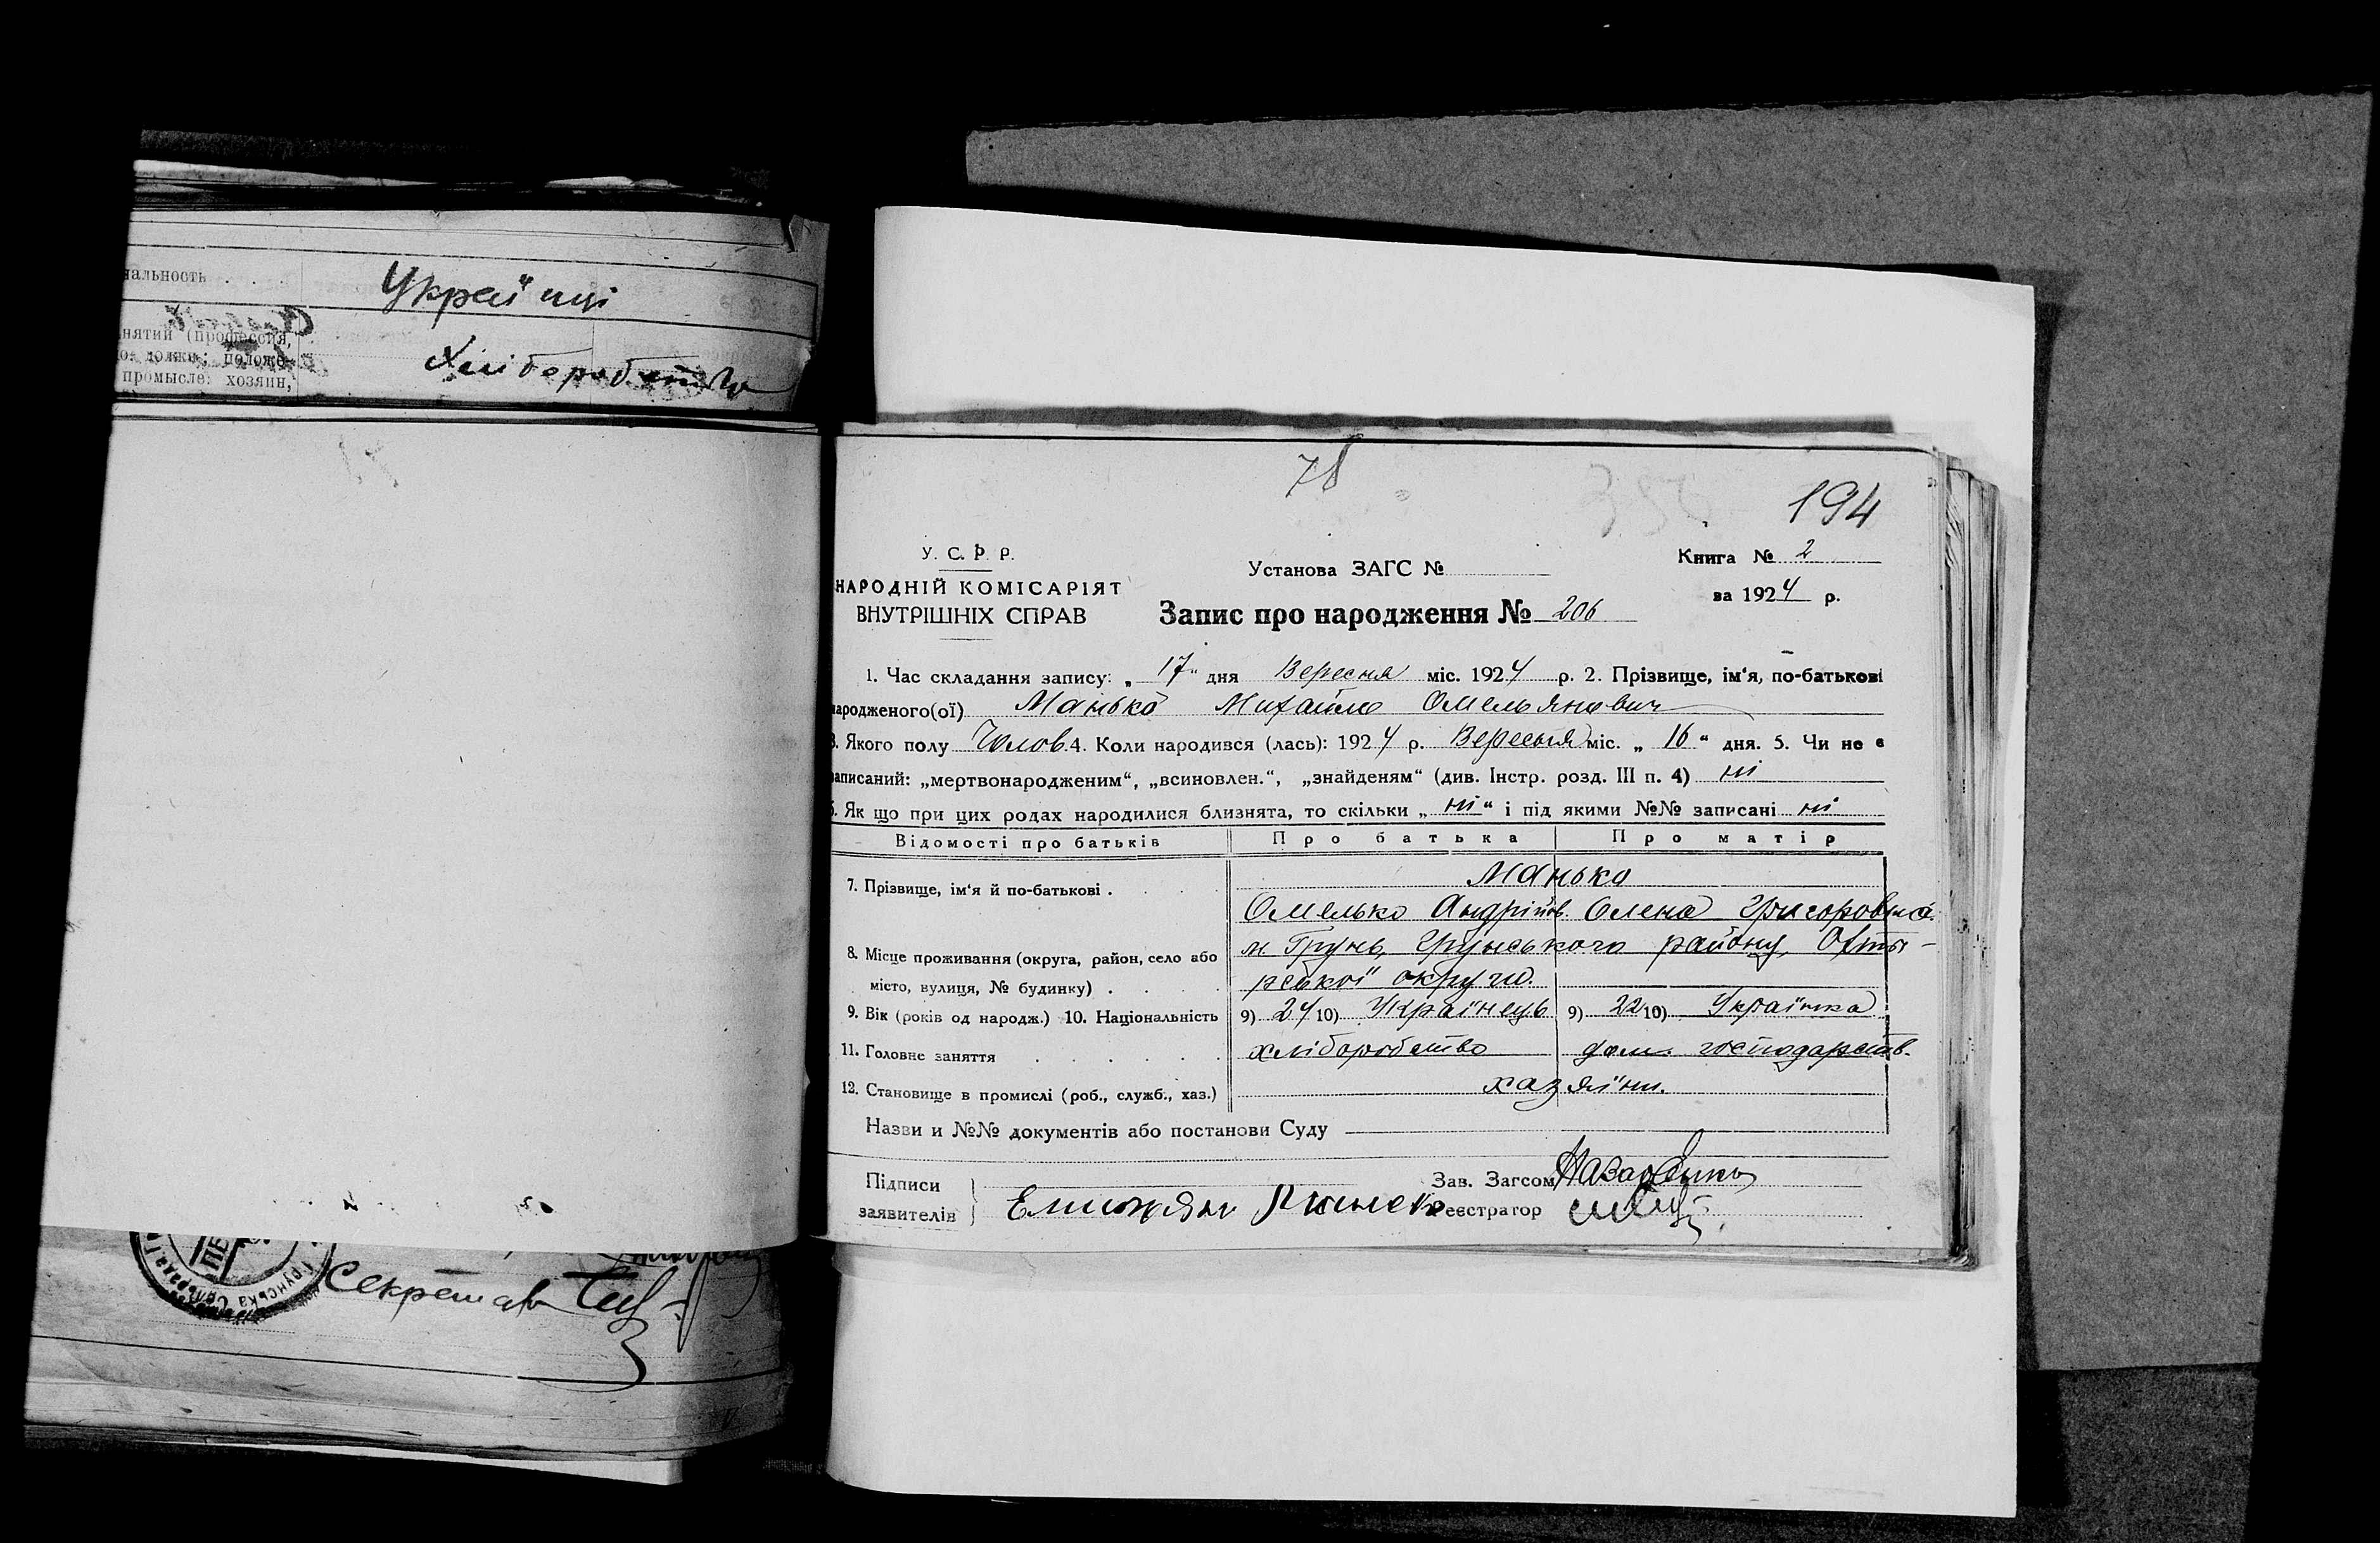 нальность . . .
Украіпці
нятий (профессия,
промысле: хозяин,
Хліборобство
78
194
У. С. Р. Р.
НАРОДНІЙ КОМІСАРІЯТ
ВНУТРІШНІХ СПРАВ
Установа ЗАГС №
Книга № 2
за 1924 р.
Запис про народження № 206
1. Час складання запису: „ 17 " дня Вересня міс. 1924 р. 2. Прізвище, ім'я, по-батькові
народженого(ої) Манько Михайло Омельянович
3. Якого полу Чолов. 4. Коли народився (лась): 1924 р. Вересня міс. „ 16 " дня. 5. Чи не є
записаний: „мертвонародженим", „всиновлен.", „знайденям" (див. Інстр. розд. III п. 4) ні
6. Як що при цих родах народилися близнята, то скільки „ ні " і під якими №№ записані ні
Відомості про батьків Про батька Про матір
7. Прізвище, ім'я й по-батькові . . . . Манько
Омелько Андрійов. Олена Григоровна
8. Місце проживання (округа, район, село або м Грунь, Грунського району, Охти-
місто, вулиця, № будинку) . . . . рської округи.
9. Вік (років од народж.) 10. Національність 9) 24 10) Українець 9) 22 10) Українка
11. Головне заняття . . . . . . хліборобство дом. господарств.
12. Становище в промислі (роб., служб., хаз.) хазяїни.
Назви и №№ документів або постанови Суду
Підписи
заявителів
Зав. Загсом Назаренко
Реєстратор
Грунська Сельрада
Секретар